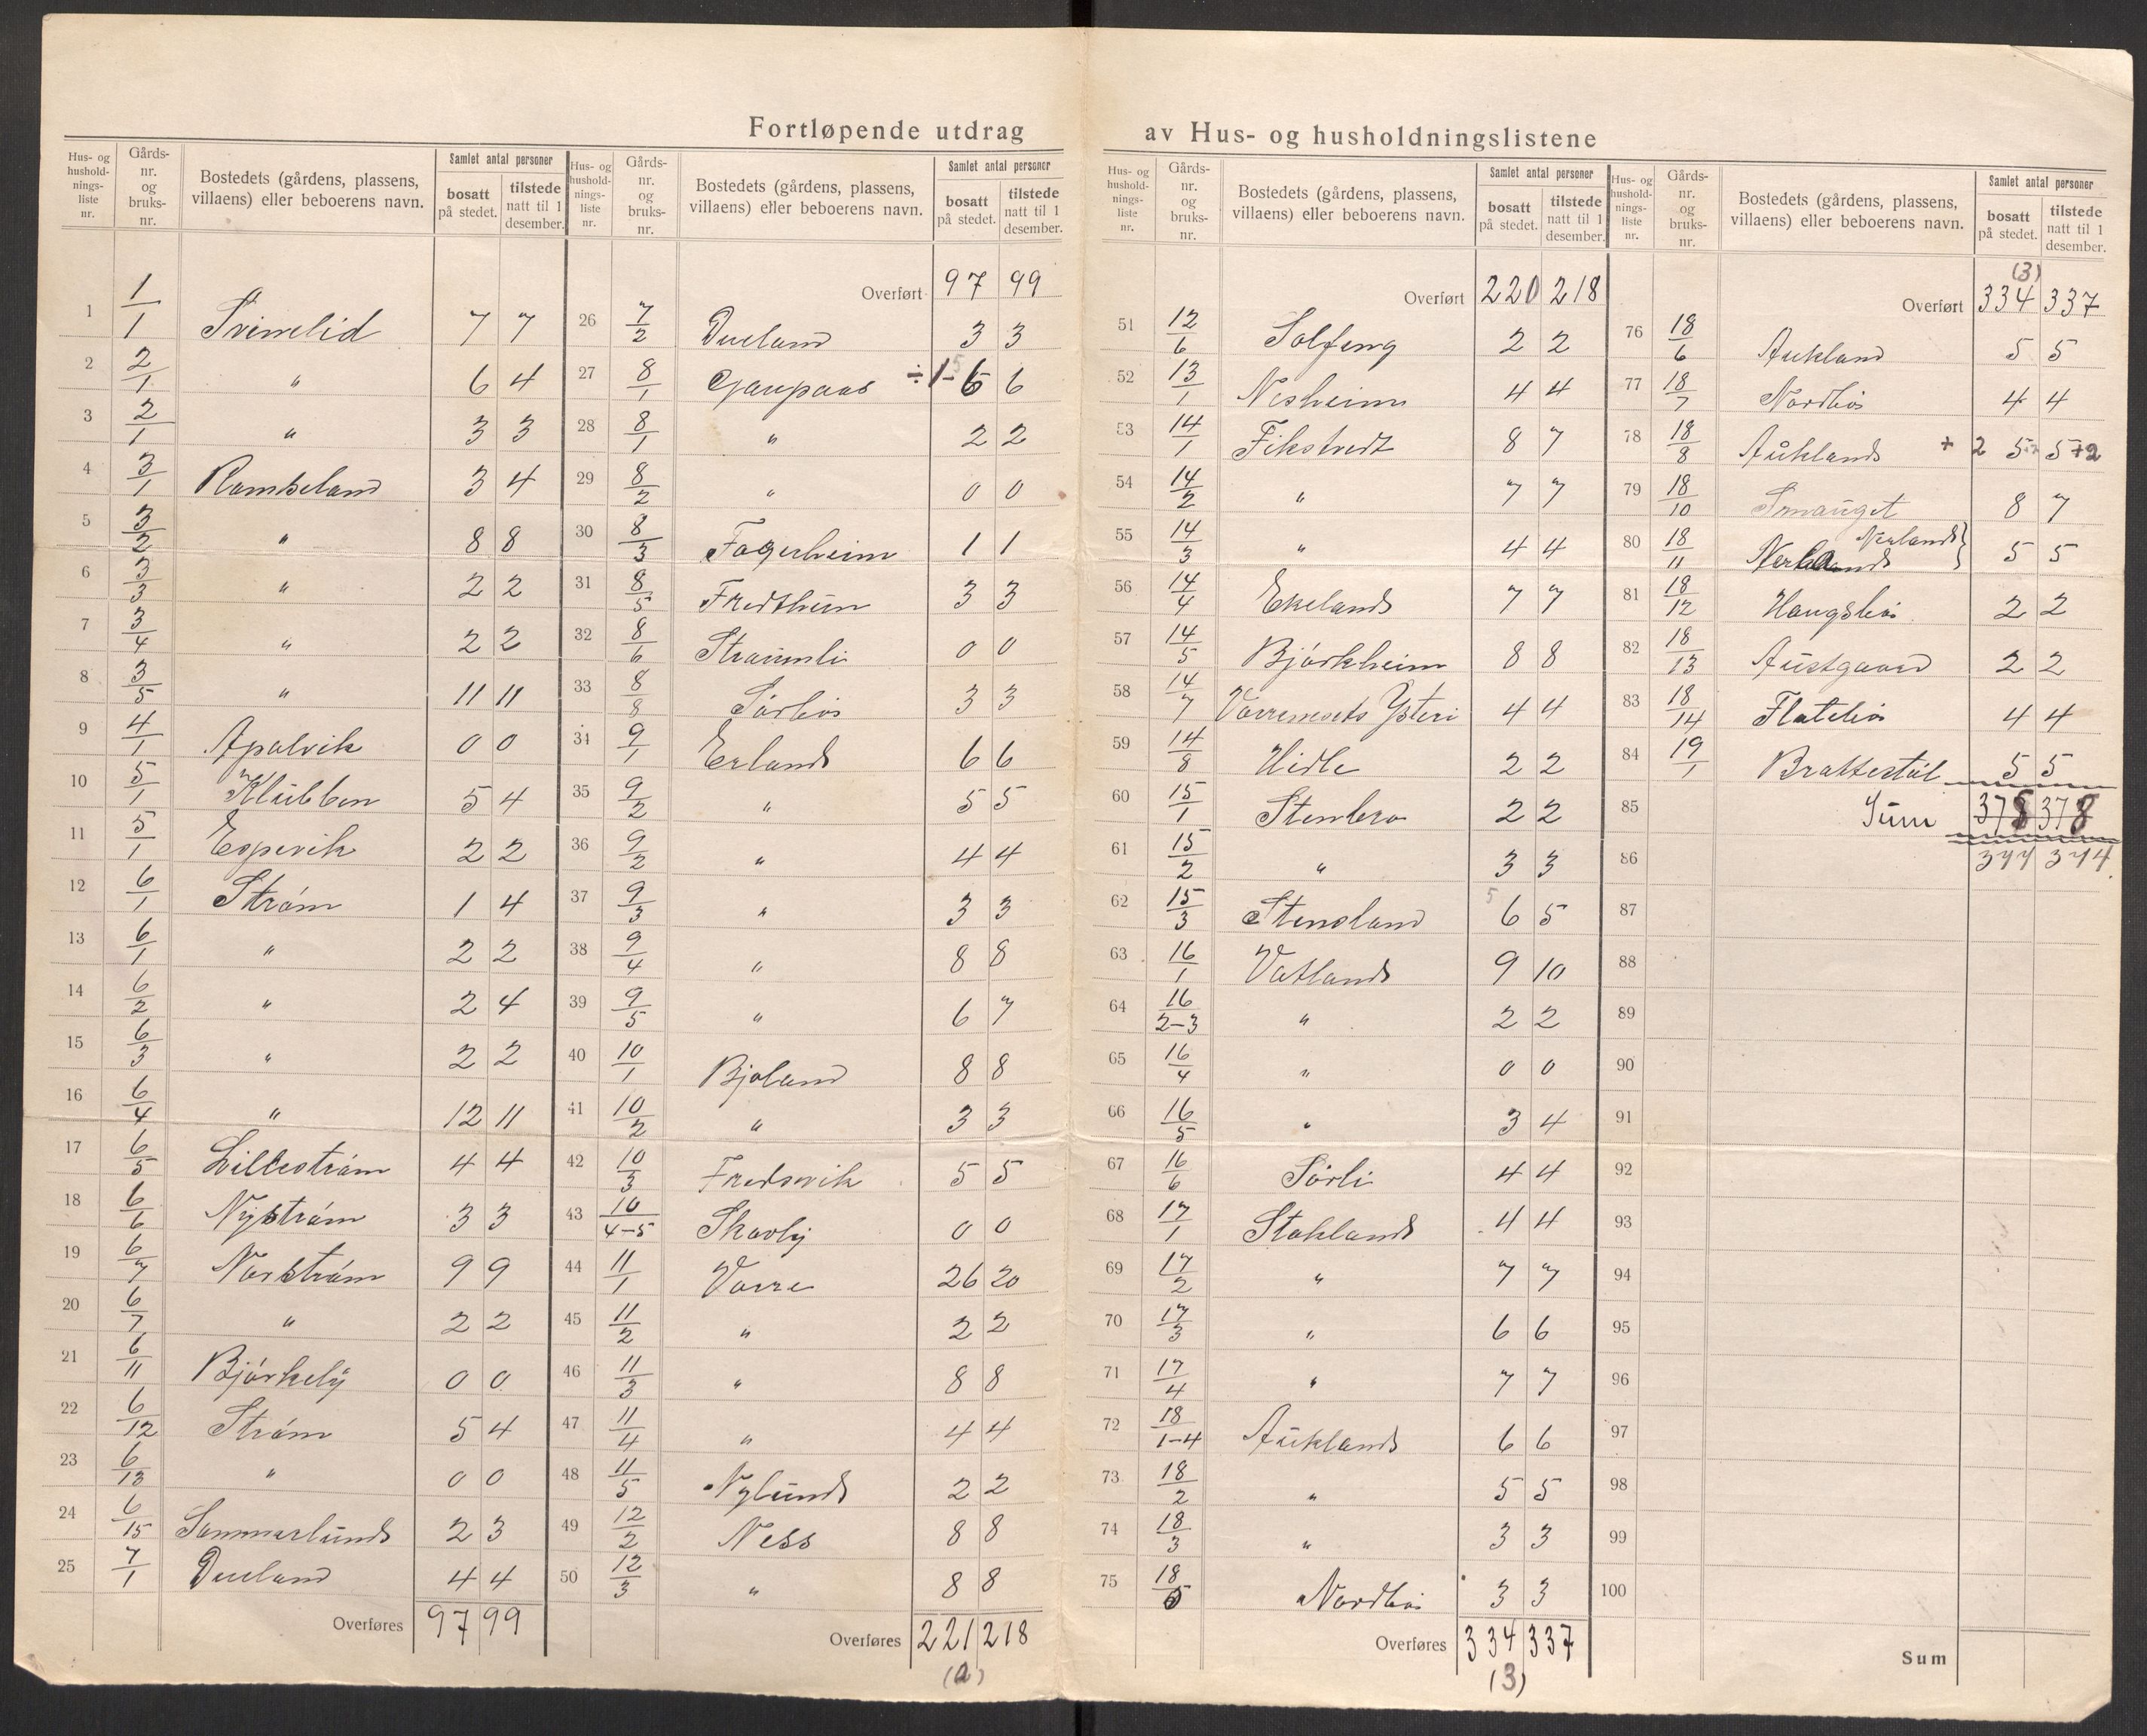 Fortløpende utdrag av Hus- og husholdningslistene
Hus- og hushold-nings-liste nr. | Gårds-nr. og bruks-nr. | Bostedets (gårdens, plassens, villaens) eller beboerens navn. | Samlet antal personer | bosatt på stedet. | tilstede natt til 1 desember.
1 1/1 Svinelid 7 7
2 2/1 " 6 4
3 2/1 " 3 3
4 3/1 Ramseland 3 4
5 3/2 " 8 8
6 3/3 " 2 2
7 3/4 " 2 2
8 3/5 " 11 11
9 4/1 Apalvik 0 0
10 5/1 Klubben 5 4
11 5/1 Espevik 2 2
12 6/1 Strøm 1 4
13 6/1 " 2 2
14 6/2 " 2 4
15 6/3 " 2 2
16 6/4 " 12 11
17 6/5 Lillestrøm 4 4
18 6/6 Nystrøm 3 3
19 6/7 Norstrøm 9 9
20 6/7 " 2 2
21 6/11 Bjørkely 0 0
22 6/12 Strøm 5 4
23 6/13 " 0 0
24 6/15 Sommerlund 2 3
25 7/1 Dueland 4 4
Overføres 97 99
Hus- og hushold-nings-liste nr. | Gårds-nr. og bruks-nr. | Bostedets (gårdens, plassens, villaens) eller beboerens navn. | Samlet antal personer | bosatt på stedet. | tilstede natt til 1 desember.
Overført 97 99
26 7/2 Dueland 3 3
27 8/1 Gaupaas ÷1- 5 6 6
28 8/1 " 2 2
29 8/2 " 0 0
30 8/3 Fagerheim 1 1
31 8/5 Fredheim 3 3
32 8/6 Straumli 0 0
33 8/8 Sørbø 3 3
34 9/1 Erland 6 6
35 9/2 " 5 5
36 9/2 " 4 4
37 9/3 " 3 3
38 9/4 " 8 8
39 9/5 " 6 7
40 10/1 Bjoland 8 8
41 10/2 " 3 3
42 10/3 Fredsvik 5 5
43 10/4-5 Skogly 0 0
44 11/1 Vorre 26 20
45 11/2 " 2 2
46 11/3 " 8 8
47 11/4 " 4 4
48 11/5 Nylund 2 2
49 12/2 Ness 8 8
50 12/3 " 8 8
Overføres 221 218
(2)
Hus- og hushold-nings-liste nr. | Gårds-nr. og bruks-nr. | Bostedets (gårdens, plassens, villaens) eller beboerens navn. | Samlet antal personer | bosatt på stedet. | tilstede natt til 1 desember.
Overført 220 218
51 12/6 Solfeng 2 2
52 13/1 Nesheim 4 4
53 14/1 Fikstvedt 8 7
54 14/2 " 7 7
55 14/3 " 4 4
56 14/4 Ekeland 7 7
57 14/5 Bjørkheim 8 8
58 14/7 Vorrenesets Ysteri 4 4
59 14/8 Hidle 2 2
60 15/1 Stenbro 2 2
61 15/2 " 3 3
62 15/3 Stensland 5 6 5
63 16/1 Vatland 9 10
64 16/2-3 " 2 2
65 16/4 " 0 0
66 16/5 " 3 4
67 16/6 Sørli 4 4
68 17/1 Stakland 4 4
69 17/2 " 7 7
70 17/3 " 6 6
71 17/4 " 7 7
72 18/1-4 Aukland 6 6
73 18/2 " 5 5
74 18/3 " 3 3
75 18/5 Nordbø 3 3
Overføres 334 337
(3)
Hus- og hushold-nings-liste nr. | Gårds-nr. og bruks-nr. | Bostedets (gårdens, plassens, villaens) eller beboerens navn. | Samlet antal personer | bosatt på stedet. | tilstede natt til 1 desember.
(3)
Overført 334 337
76 18/6 Aukland 5 5
77 18/7 Nordbø 4 4
78 18/8 Aukland + 2 5 5+2
79 18/10 8 7
80 18/11 Nerland Nerland 5 5
81 18/12 Haugsbø 2 2
82 18/13 Austgaard 2 2
83 18/14 Flatebø 4 4
84 19/1 Brattestøl 5 5
85 Sum 378 378
86 377 374.
87
88
89
90
91
92
93
94
95
96
97
98
99
100
Sum